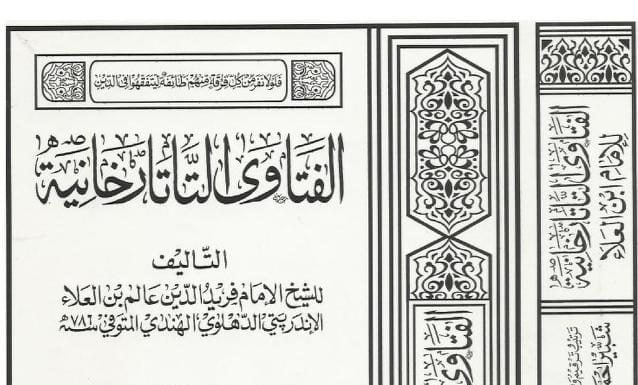 فلولا نفر من كل فرقة منهم طائفة ليتفقهوا في الدين
الفتاوى التاتارخانية
التأليف
للشيخ الإمام فريد الدين عالم بن العلاء
الإندربتي الدهلوي الهندي المتوفى سنة ٧٨٦ه
الفتاوى
الفتاوى التاتارخانية
للإمام ابن العلاء